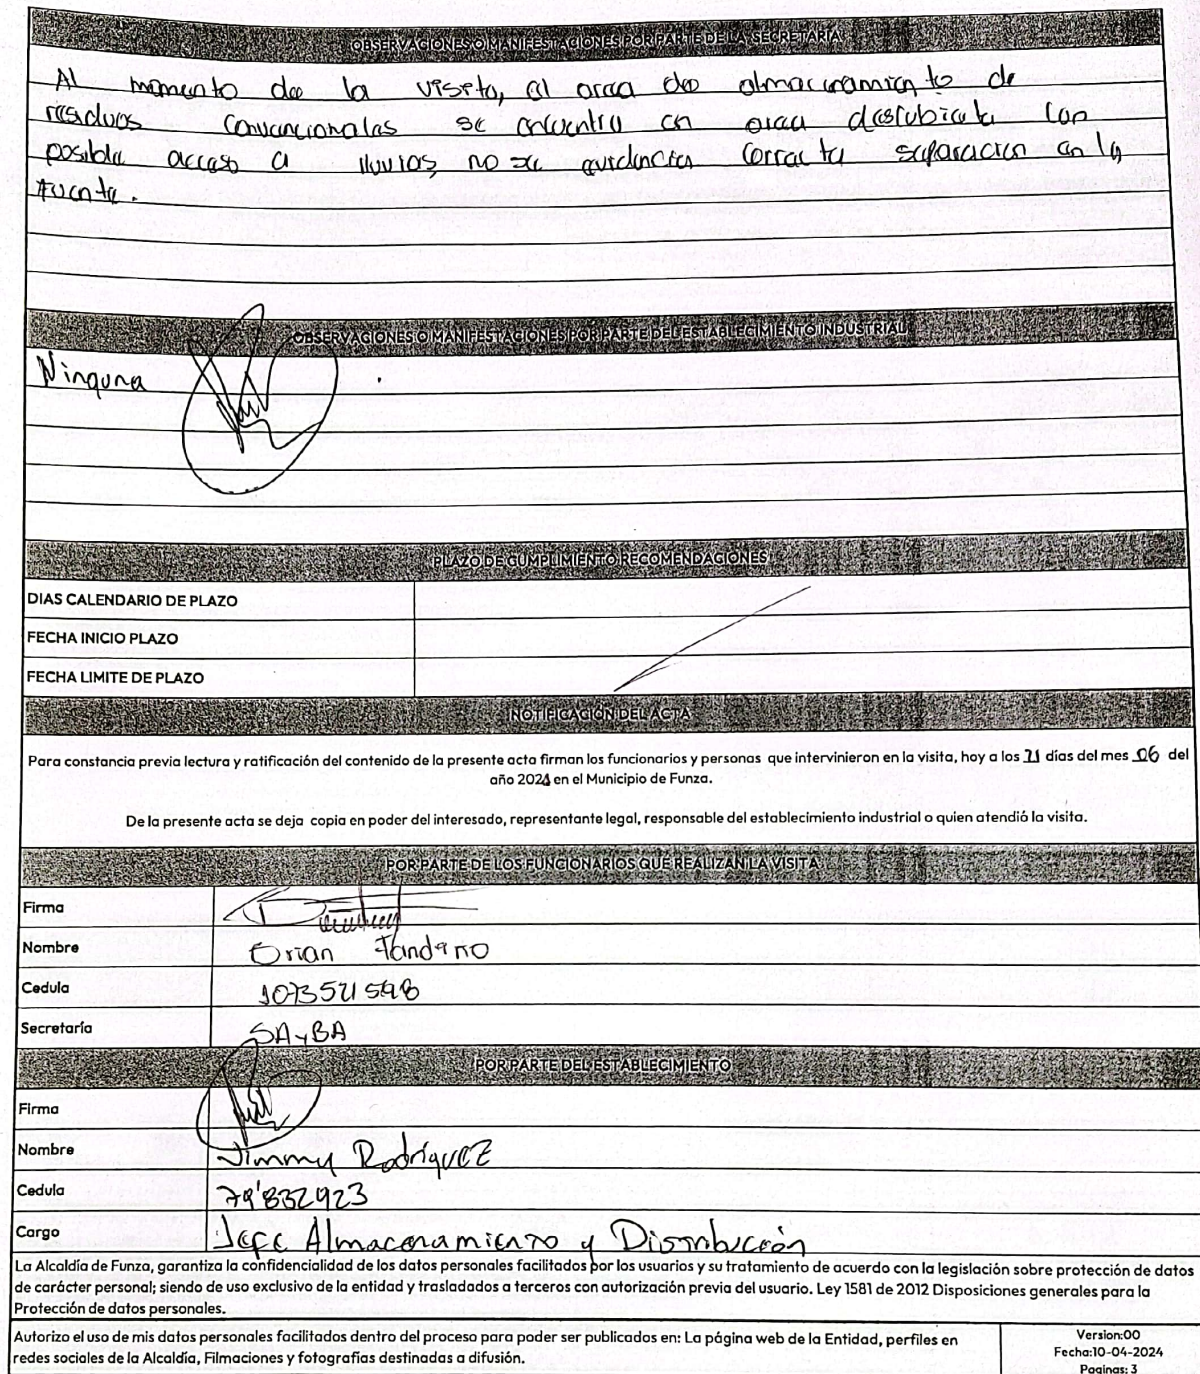 OBSERVACIONES O MANIFESTACIONES POR PARTE DE LA SECRETARIA
Al momento de la visita, el area de almacenamiento de
residuos convencionales se encuentra en area descubierta con
posible acceso a lluvias, no se evidencia correcta separacion en la
fuente.
OBSERVACIONES O MANIFESTACIONES POR PARTE DEL ESTABLECIMIENTO INDUSTRIAL
Ninguna
PLAZO DE CUMPLIMIENTO RECOMENDACIONES
DIAS CALENDARIO DE PLAZO
FECHA INICIO PLAZO
FECHA LIMITE DE PLAZO
NOTIFICACIÓN DEL ACTA
Para constancia previa lectura y ratificación del contenido de la presente acta firman los funcionarios y personas que intervinieron en la visita, hoy a los 21 días del mes 06 del
año 2024 en el Municipio de Funza.
De la presente acta se deja copia en poder del interesado, representante legal, responsable del establecimiento industrial o quien atendió la visita.
POR PARTE DE LOS FUNCIONARIOS QUE REALIZAN LA VISITA
Firma
Nombre
Cedula
Secretaría SAyBA
POR PARTE DEL ESTABLECIMIENTO
Firma
Nombre Jimmy Rodríguez
Cedula 79'832923
Cargo Jefe Almacenamiento y Distribución
La Alcaldía de Funza, garantiza la confidencialidad de los datos personales facilitados por los usuarios y su tratamiento de acuerdo con la legislación sobre protección de datos
de carácter personal; siendo de uso exclusivo de la entidad y trasladados a terceros con autorización previa del usuario. Ley 1581 de 2012 Disposiciones generales para la
Protección de datos personales.
Autorizo el uso de mis datos personales facilitados dentro del proceso para poder ser publicados en: La página web de la Entidad, perfiles en
redes sociales de la Alcaldía, Filmaciones y fotografías destinadas a difusión.
Version:00
Fecha:10-04-2024
Paginas: 3